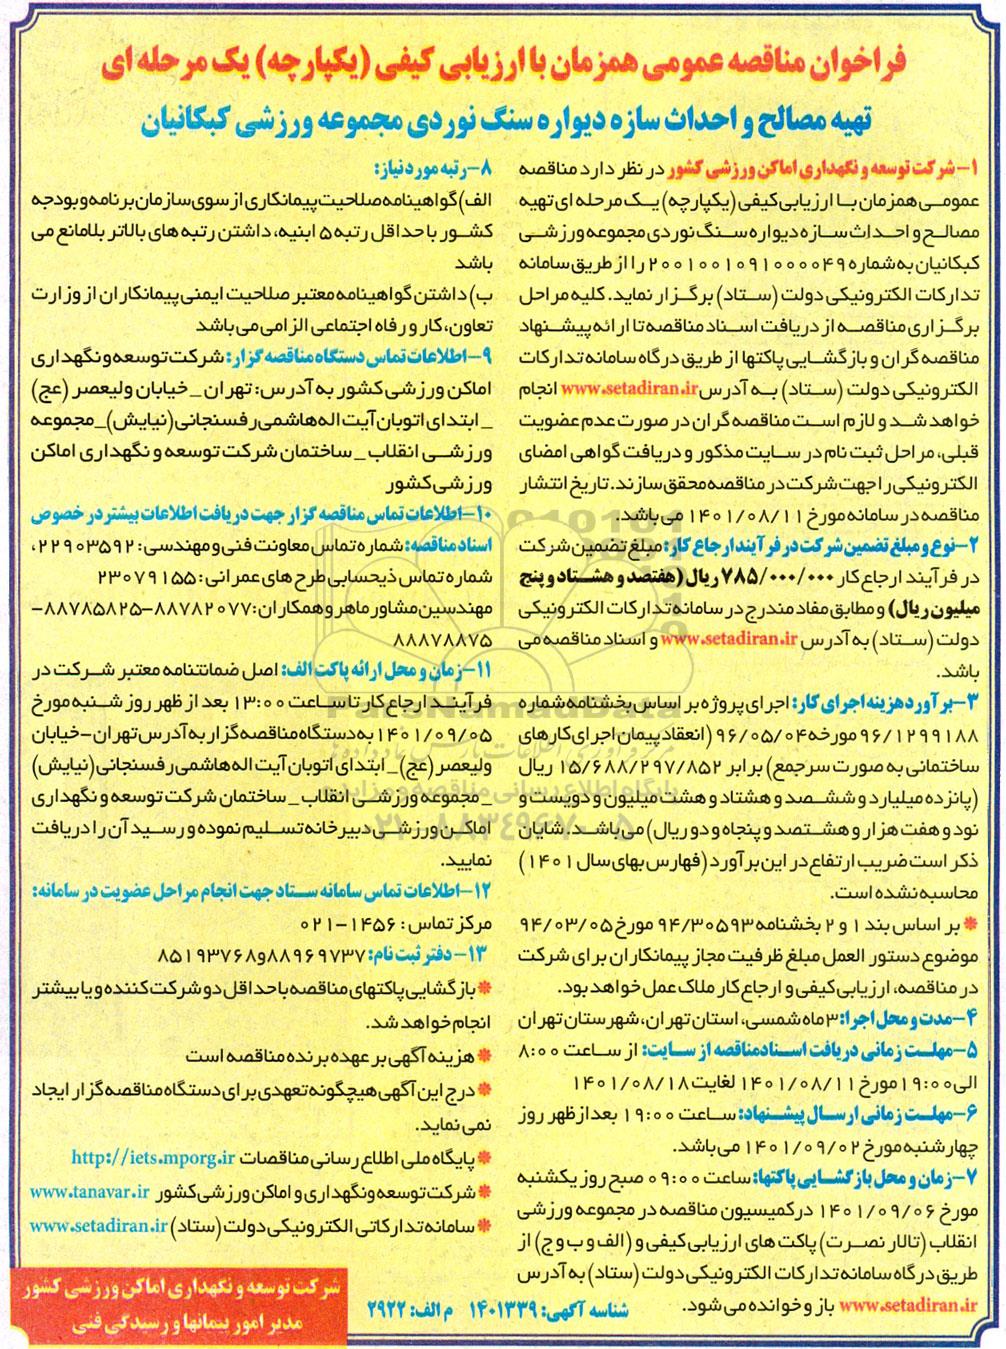 فراخوان مناقصه عمومی همزمان با ارزیابی کیفی (یکپارچه) یک مرحله ای
تهیه مصالح و احداث سازه دیواره سنگ نوردی مجموعه ورزشی کبکانیان
۱- شرکت توسعه و نگهداری اماکن ورزشی کشور در نظر دارد مناقصه
عمومی همزمان با ارزیابی کیفی (یکپارچه) یک مرحله ای تهیه
مصالح و احداث سازه دیواره سنگ نوردی مجموعه ورزشی
کبکانیان به شماره ۲۰۰۱۰۰۱۰۹۱۰۰۰۰۴۹ را از طریق سامانه
تدارکات الکترونیکی دولت (ستاد) برگزار نماید. کلیه مراحل
برگزاری مناقصه از دریافت اسناد مناقصه تا ارائه پیشنهاد
مناقصه گران و بازگشایی پاکتها از طریق درگاه سامانه تدارکات
الکترونیکی دولت (ستاد) به آدرس www.setadiran.ir انجام
خواهد شد و لازم است مناقصه گران در صورت عدم عضویت
قبلی، مراحل ثبت نام در سایت مذکور و دریافت گواهی امضای
الکترونیکی را جهت شرکت در مناقصه محقق سازند. تاریخ انتشار
مناقصه در سامانه مورخ ۱۴۰۱/۰۸/۱۱ می باشد.
۲- نوع و مبلغ تضمین شرکت در فرآیند ارجاع کار: مبلغ تضمین شرکت
در فرآیند ارجاع کار ۷۸۵/۰۰۰/۰۰۰ ریال (هفتصد و هشتاد و پنج
میلیون ریال) و مطابق مفاد مندرج در سامانه تدارکات الکترونیکی
دولت (ستاد) به آدرس www.setadiran.ir و اسناد مناقصه می
باشد.
۳- برآورد هزینه اجرای کار: اجرای پروژه بر اساس بخشنامه شماره
۹۶/۱۲۹۹۱۸۸ مورخه ۹۶/۰۵/۰۴ (انعقاد پیمان اجرای کارهای
ساختمانی به صورت سرجمع) برابر ۱۵/۶۸۸/۲۹۷/۸۵۲ ریال
(پانزده میلیارد و ششصد و هشتاد و هشت میلیون و دویست و
نود و هفت هزار و هشتصد و پنجاه و دو ریال) می باشد. شایان
ذکر است ضریب ارتفاع در این برآورد (فهارس بهای سال ۱۴۰۱)
محاسبه نشده است.
* بر اساس بند ۱ و ۲ بخشنامه ۹۴/۳۰۵۹۳ مورخ ۹۴/۰۳/۰۵
موضوع دستور العمل مبلغ ظرفیت مجاز پیمانکاران برای شرکت
در مناقصه، ارزیابی کیفی و ارجاع کار ملاک عمل خواهد بود.
۴- مدت و محل اجرا: ۳ ماه شمسی، استان تهران، شهرستان تهران
۵- مهلت زمانی دریافت اسناد مناقصه از سایت: از ساعت ۸:۰۰
الی ۱۹:۰۰ مورخ ۱۴۰۱/۰۸/۱۱ لغایت ۱۴۰۱/۰۸/۱۸
۶- مهلت زمانی ارسال پیشنهاد: ساعت ۱۹:۰۰ بعد از ظهر روز
چهارشنبه مورخ ۱۴۰۱/۰۹/۰۲ می باشد.
۷- زمان و محل بازگشایی پاکتها: ساعت ۰۹:۰۰ صبح روز یکشنبه
مورخ ۱۴۰۱/۰۹/۰۶ در کمیسیون مناقصه در مجموعه ورزشی
انقلاب (تالار نصرت) پاکت های ارزیابی کیفی و (الف و ب و ج) از
طریق درگاه سامانه تدارکات الکترونیکی دولت (ستاد) به آدرس
www.setadiran.ir باز و خوانده می شود.
۸- رتبه مورد نیاز:
الف) گواهینامه صلاحیت پیمانکاری از سوی سازمان برنامه و بودجه
کشور با حداقل رتبه ۵ ابنیه، داشتن رتبه های بالاتر بلامانع می
باشد
ب) داشتن گواهینامه معتبر صلاحیت ایمنی پیمانکاران از وزارت
تعاون، کار و رفاه اجتماعی الزامی می باشد
۹- اطلاعات تماس دستگاه مناقصه گزار: شرکت توسعه و نگهداری
اماکن ورزشی کشور به آدرس: تهران _ خیابان ولیعصر (عج)
_ ابتدای اتوبان آیت اله هاشمی رفسنجانی (نیایش) _ مجموعه
ورزشی انقلاب _ ساختمان شرکت توسعه و نگهداری اماکن
ورزشی کشور
۱۰- اطلاعات تماس مناقصه گزار جهت دریافت اطلاعات بیشتر در خصوص
اسناد مناقصه: شماره تماس معاونت فنی و مهندسی: ۲۲۹۰۳۵۹۲،
شماره تماس ذیحسابی طرح های عمرانی: ۲۳۰۷۹۱۵۵
مهندسین مشاور ماهر و همکاران: ۸۸۷۸۲۰۷۷-۸۸۷۸۵۸۲۵-
۸۸۸۷۸۸۷۵
۱۱- زمان و محل ارائه پاکت الف: اصل ضمانتنامه معتبر شرکت در
فرآیند ارجاع کار تا ساعت ۱۳:۰۰ بعد از ظهر روز شنبه مورخ
۱۴۰۱/۰۹/۰۵ به دستگاه مناقصه گزار به آدرس تهران - خیابان
ولیعصر (عج) _ ابتدای اتوبان آیت اله هاشمی رفسنجانی (نیایش)
_ مجموعه ورزشی انقلاب _ ساختمان شرکت توسعه و نگهداری
اماکن ورزشی دبیرخانه تسلیم نموده و رسید آن را دریافت
نمایید.
۱۲- اطلاعات تماس سامانه ستاد جهت انجام مراحل عضویت در سامانه:
مرکز تماس: ۱۴۵۶-۰۲۱
۱۳- دفتر ثبت نام: ۸۸۹۶۹۷۳۷ و ۸۵۱۹۳۷۶۸
* بازگشایی پاکتهای مناقصه با حداقل دو شرکت کننده و یا بیشتر
انجام خواهد شد.
* هزینه آگهی بر عهده برنده مناقصه است
* درج این آگهی هیچگونه تعهدی برای دستگاه مناقصه گزار ایجاد
نمی نماید.
* پایگاه ملی اطلاع رسانی مناقصات http://iets.mporg.ir
* شرکت توسعه و نگهداری و اماکن ورزشی کشور www.tanavar.ir
* سامانه تدارکاتی الکترونیکی دولت (ستاد) www.setadiran.ir
شناسه آگهی: ۱۴۰۱۳۳۹ م الف: ۲۹۲۲
شرکت توسعه و نگهداری اماکن ورزشی کشور
مدیر امور پیمانها و رسیدگی فنی
ParsNamadData
پایگاه اطلاع رسانی مناقصه و مزایده